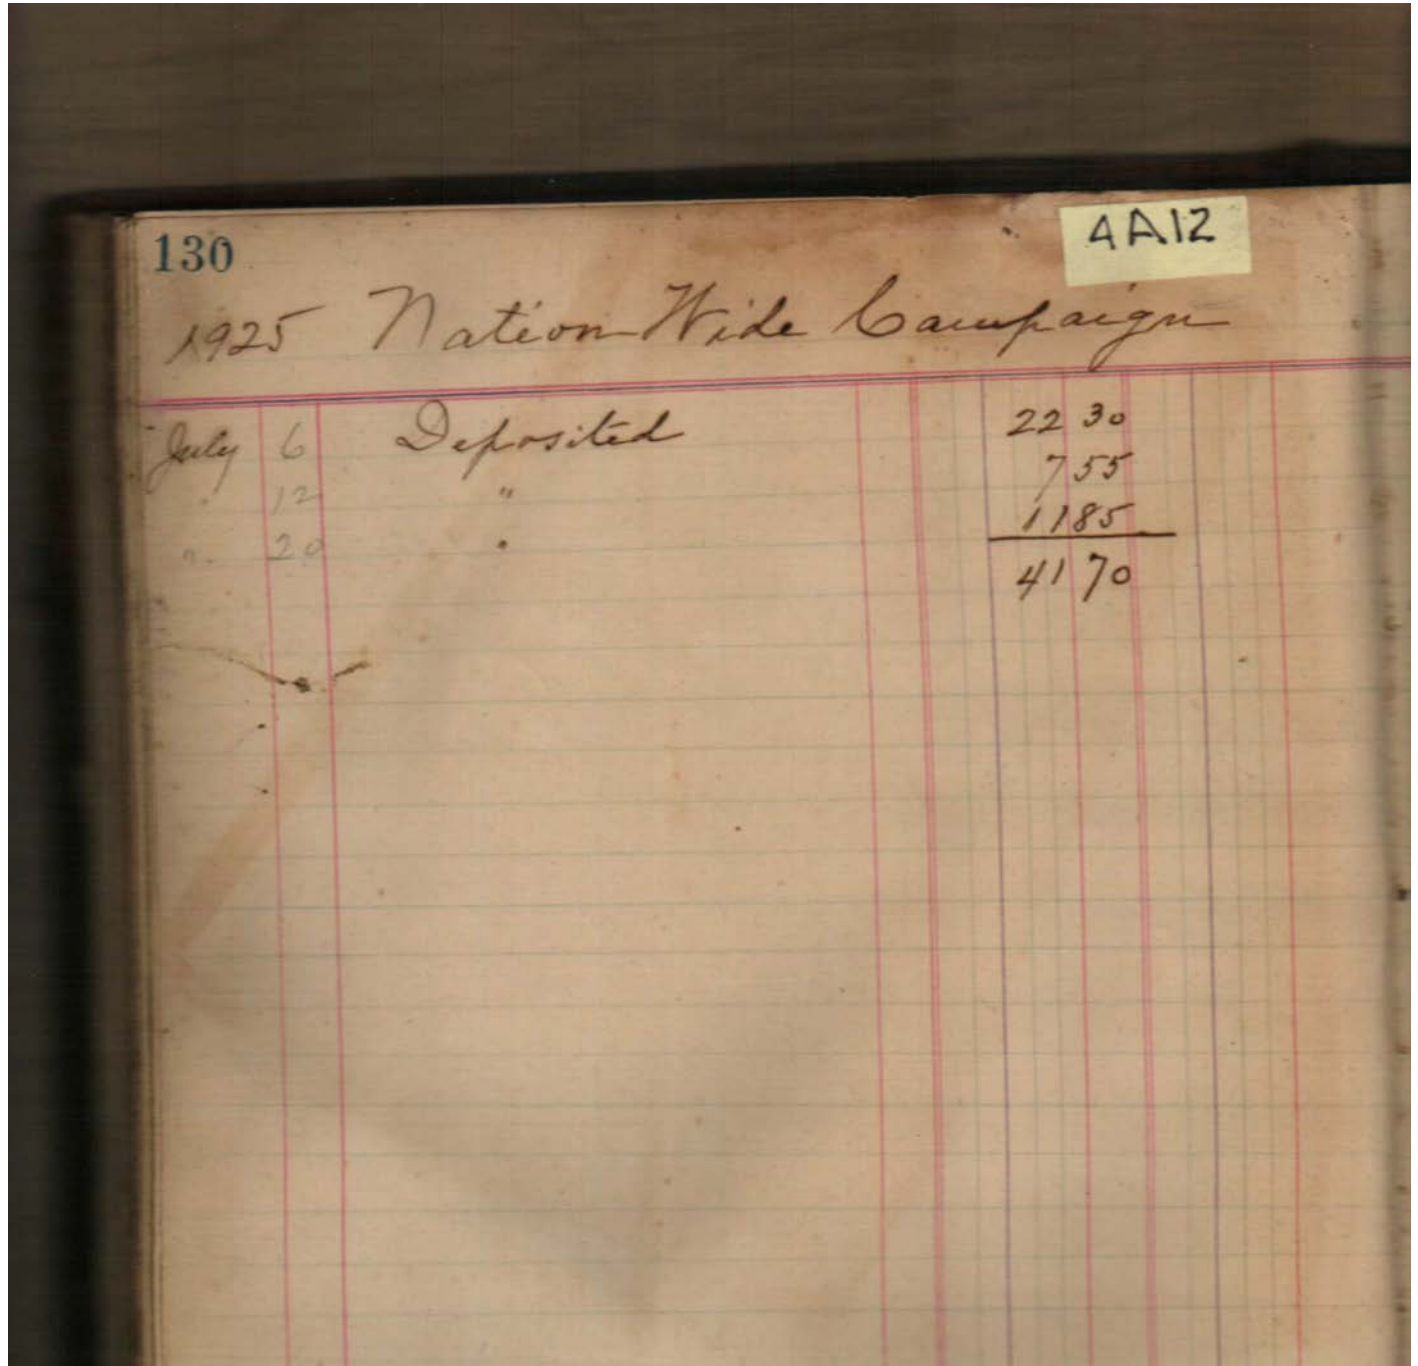 4A12
130
1925 Nation Wide Campaign
July 6 Deposited 22 30
" 12 " 7 55
" 20 " 11 85
41 70